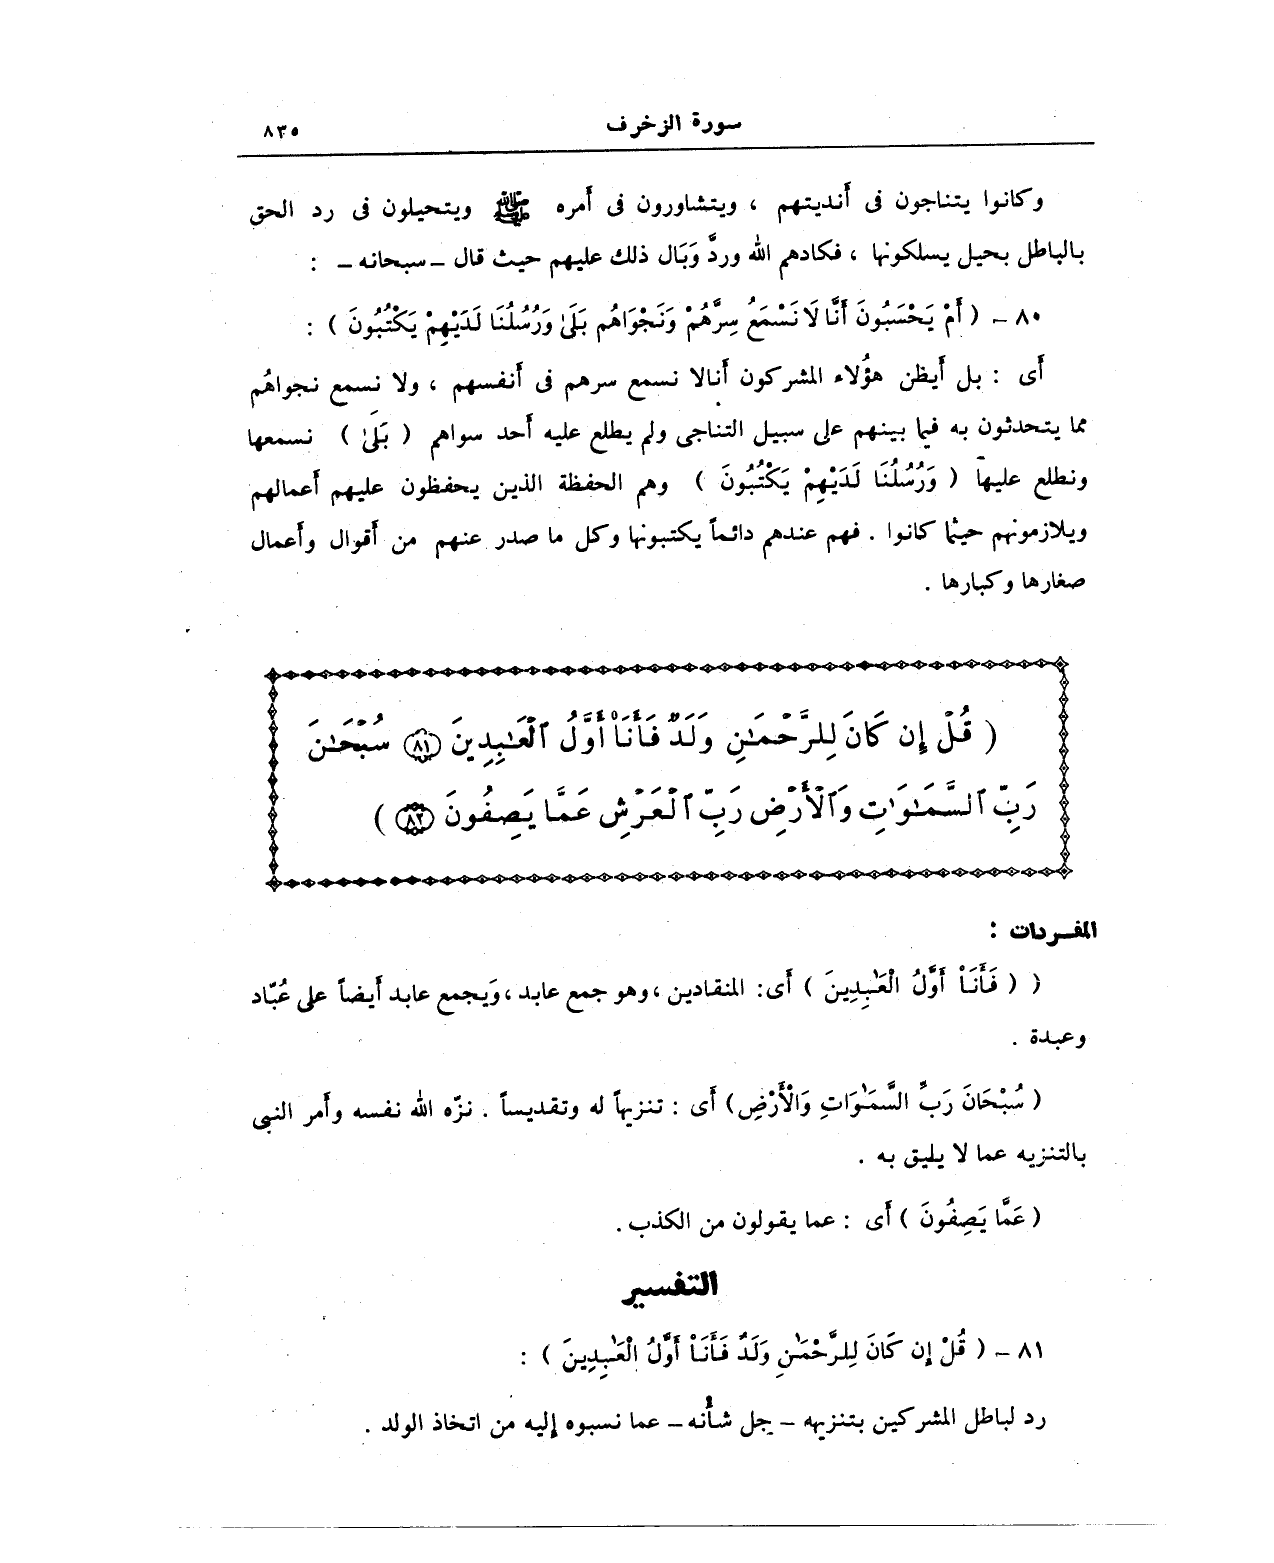 سورة الزخرف ٨٣٥
وكانوا يتناجون فى أنديتهم ، ويتشاورون فى أمره ﷺ ويتحيلون فى رد الحق
بالباطل بحيل يسلكونها ، فكادهم الله وردَّ وَبَال ذلك عليهم حيث قال ـ سبحانه ـ :
٨٠ ـ ( أَمْ يَحْسَبُونَ أَنَّا لَا نَسْمَعُ سِرَّهُمْ وَنَجْوَاهُم بَلَىٰ وَرُسُلُنَا لَدَيْهِمْ يَكْتُبُونَ ) :
أى : بل أيظن هؤلاء المشركون أنالا نسمع سرهم فى أنفسهم ، ولا نسمع نجواهُم
مما يتحدثون به فيما بينهم على سبيل التناجى ولم يطلع عليه أحد سواهم ( بَلَىٰ ) نسمعها
ونطلع عليها ( وَرُسُلُنَا لَدَيْهِمْ يَكْتُبُونَ ) وهم الحفظة الذين يحفظون عليهم أعمالهم
ويلازمونهم حيثما كانوا . فهم عندهم دائماً يكتبونها وكل ما صدر عنهم من أقوال وأعمال
صغارها وكبارها .
( قُلْ إِن كَانَ لِلرَّحْمَـٰنِ وَلَدٌ فَأَنَا۠ أَوَّلُ ٱلْعَـٰبِدِينَ ٨١ سُبْحَـٰنَ
رَبِّ ٱلسَّمَـٰوَٰتِ وَٱلْأَرْضِ رَبِّ ٱلْعَرْشِ عَمَّا يَصِفُونَ ٨٢ )
المفـردات :
( ( فَأَنَاْ أَوَّلُ الْعَـٰبِدِينَ ) أى: المنقادين ، وهو جمع عابد ، وَيجمع عابد أيضاً على عُبّاد
وعبدة .
( سُبْحَانَ رَبِّ السَّمَـٰوَاتِ وَالْأَرْضِ) أى : تنزيهاً له وتقديساً . نزّه الله نفسه وأمر النبى
بالتنزيه عما لا يليق به .
( عَمَّا يَصِفُونَ ) أى : عما يقولون من الكذب .
التفسير
٨١ ـ ( قُلْ إِن كَانَ لِلرَّحْمَـٰنِ وَلَدٌ فَأَنَاْ أَوَّلُ الْعَـٰبِدِينَ ) :
رد لباطل المشركين بتنزيهه ـ جل شأنه ـ عما نسبوه إليه من اتخاذ الولد .